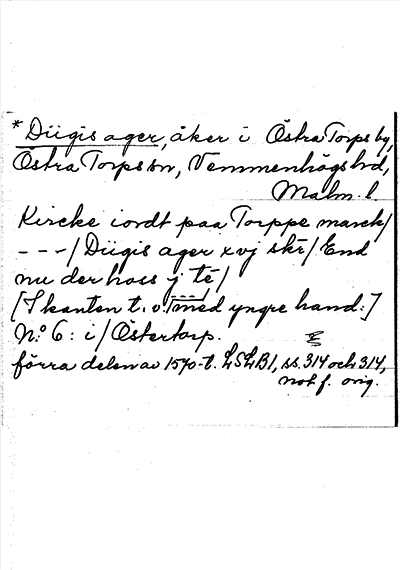 * Diigis ager, åker i Östra Torps by,
Östra Torps sn, Vemmenhögs hd,
Malm. l.
Kircke iordt paa Torppe marck/
- - -/ Diigis ager xvj skr/ End
nu der hoss j te/
[I kanten t. v. med yngre hand:]
No 6: i/ Östertorp.
förra delen av 1570-t. LSLB1, ss. 314 och 314,
not f. orig.